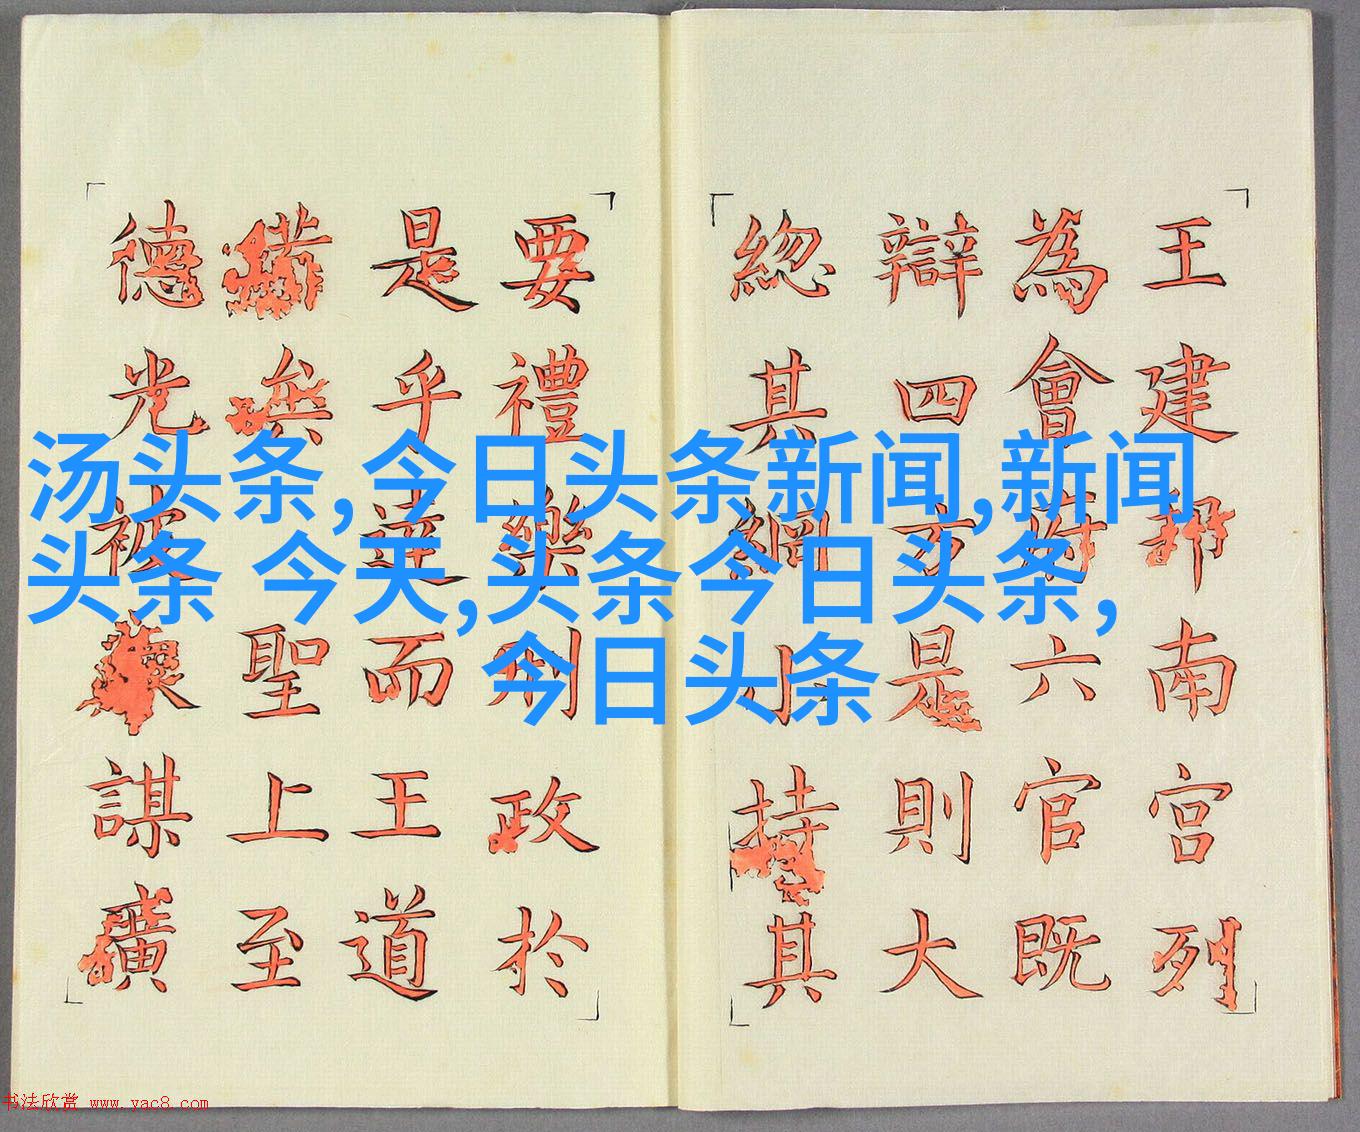 王建邦南宮列
為會府六官既
辯四方是則大
緫其綱持其
要禮樂刑政於
是乎達而王道
備矣聖上至
德光被謀廣
汤头条,今日头条新闻,新闻
头条 今天,头条今日头条,
今日头条
书法欣赏 www.yac8.com